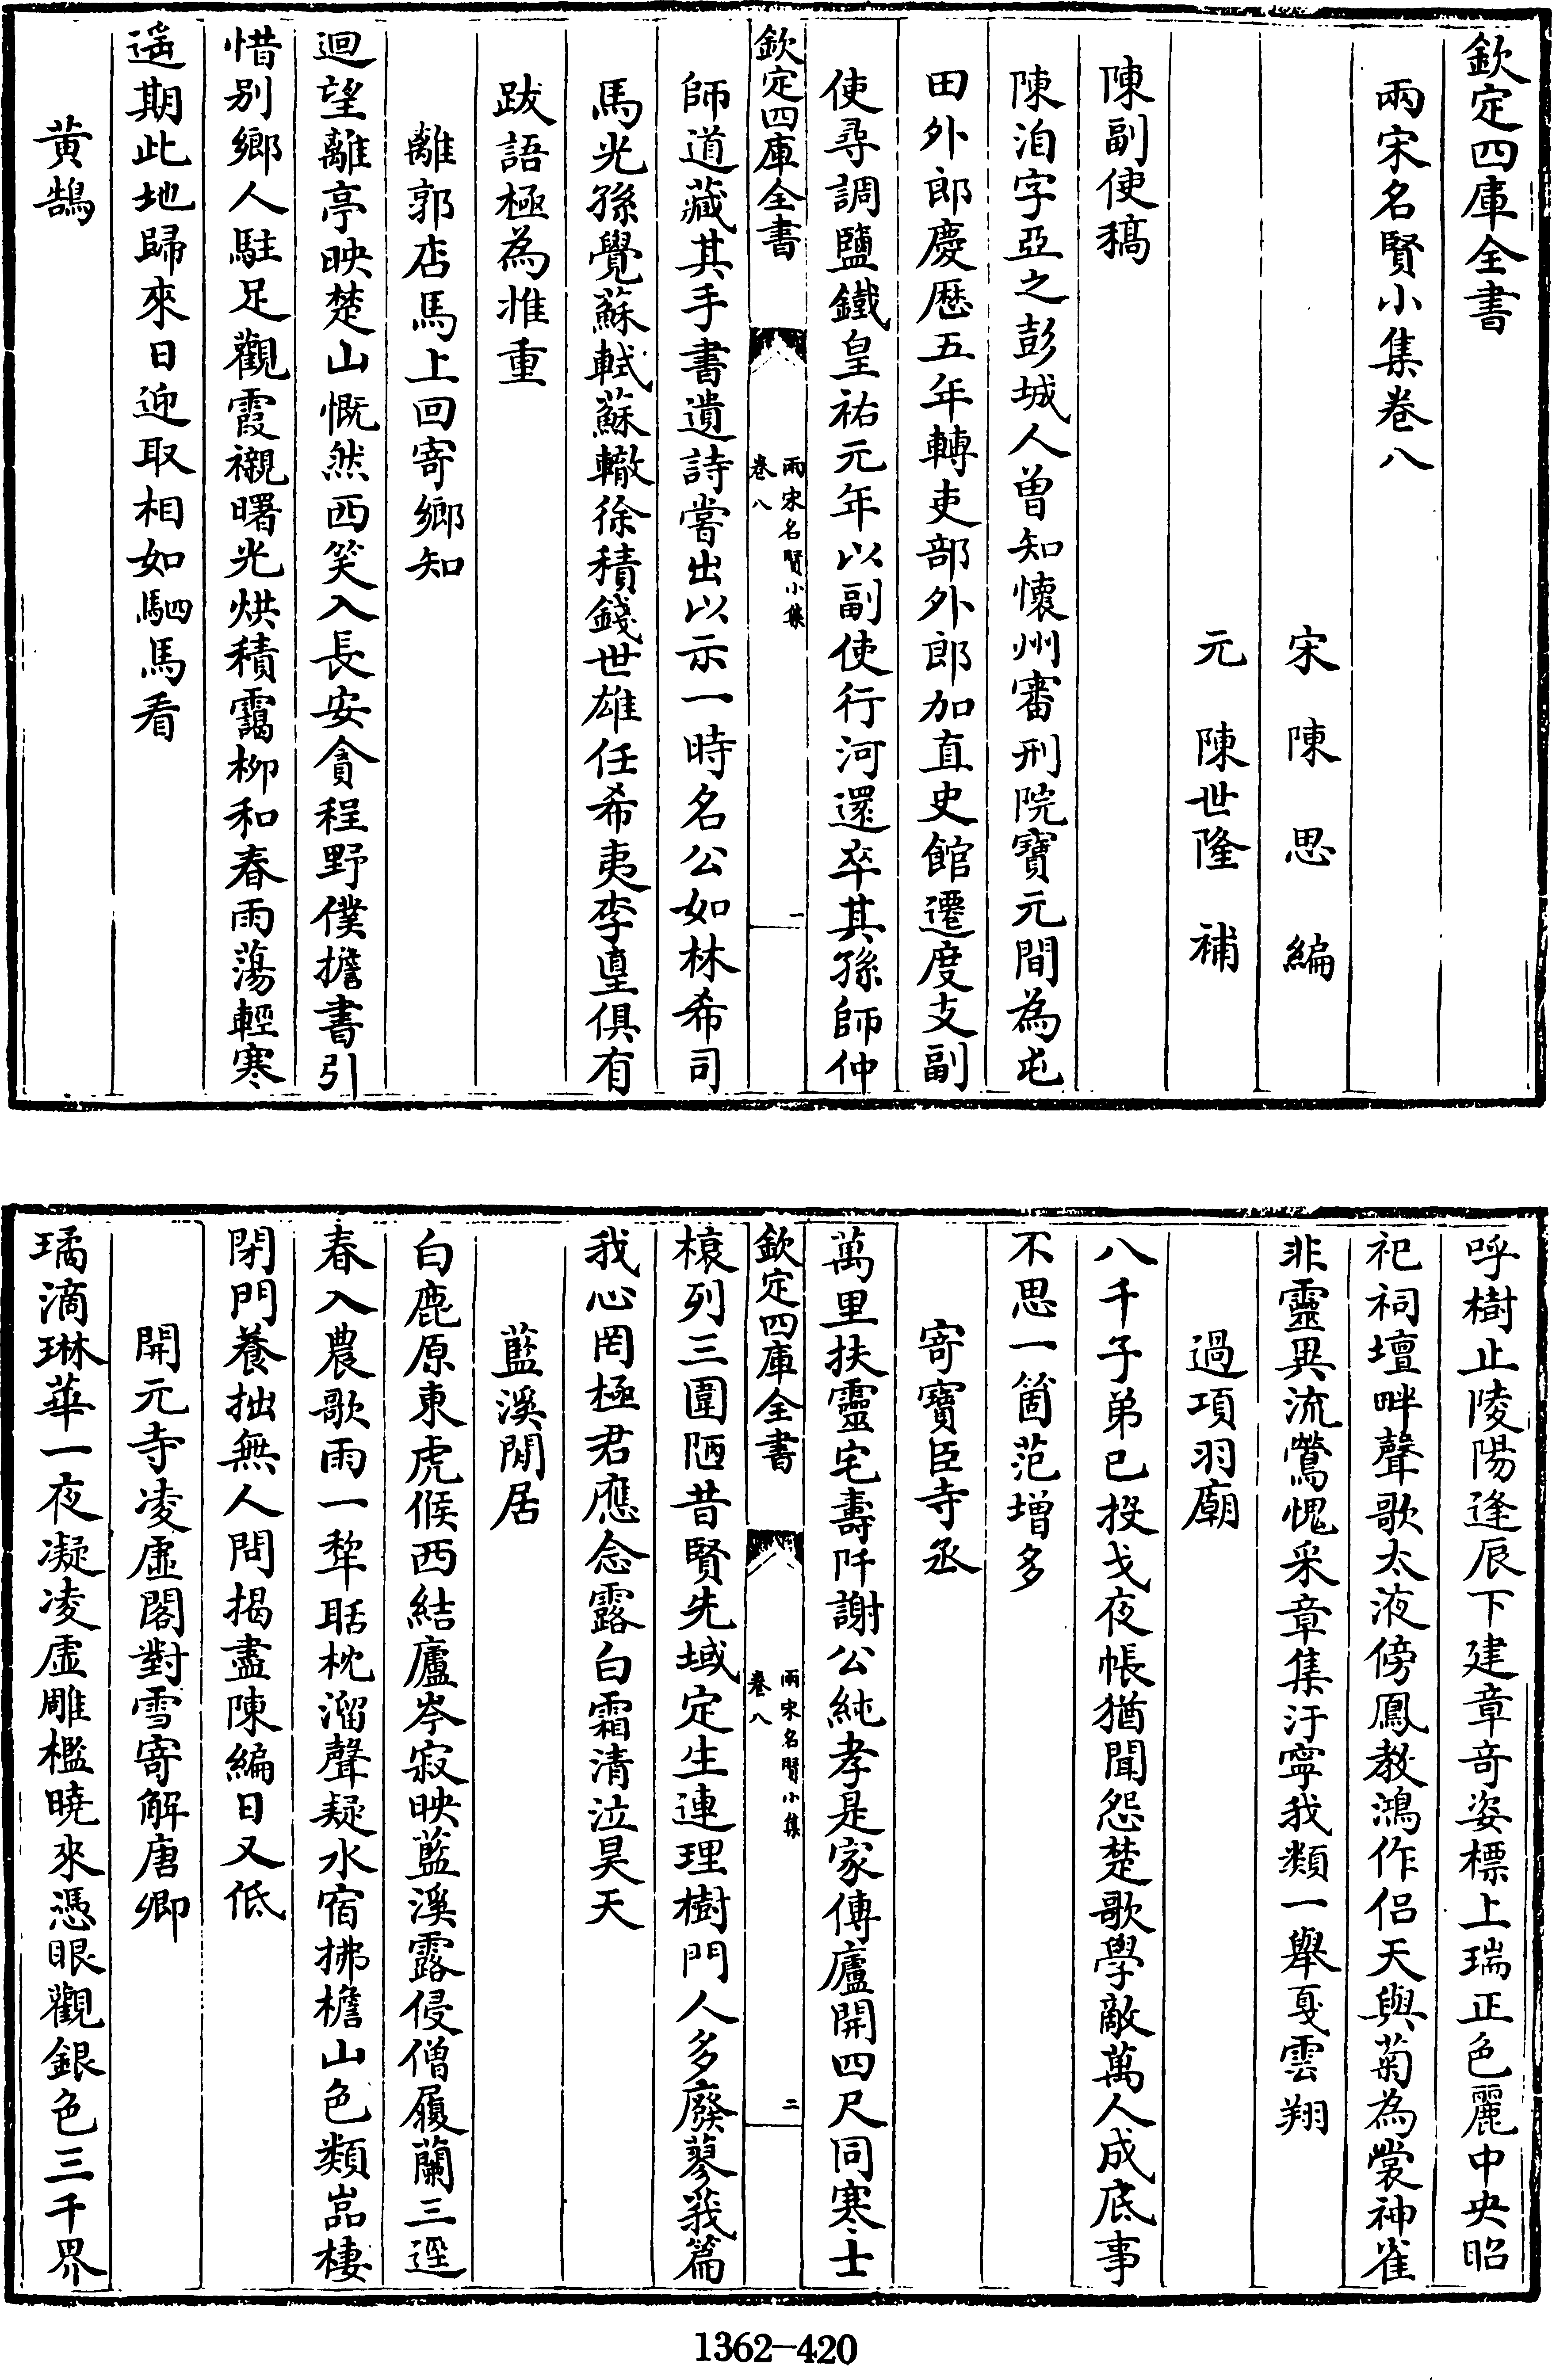 欽定四庫全書
兩宋名賢小集卷八
宋 陳 思 編
元 陳世隆 補
陳副使稿
陳洎字亞之彭城人曾知懷州審刑院寶元間為屯
田外郎慶厯五年轉吏部外郎加直史館遷度支副
使尋調鹽鐵皇祐元年以副使行河還卒其孫師仲
欽定四庫全書
兩宋名賢小集
卷八
一
師道藏其手書遺詩嘗出以示一時名公如林希司
馬光孫覺蘇軾蘇轍徐積錢世雄任希夷李𡌴俱有
跋語極為推重
離郭店馬上回寄鄉知
迴望離亭映楚山慨然西笑入長安貪程野僕擔書引
惜别鄉人駐足觀霞襯曙光烘積靄柳和春雨蕩輕寒
遥期此地歸來日迎取相如駟馬看
黄鵠
呼樹止陵陽逢辰下建章奇姿標上瑞正色麗中央昭
祀祠壇畔聲歌太液傍鳳教鴻作侣天與菊為裳神雀
非靈異流鶯愧采章集汙寧我類一舉戛雲翔
過項羽廟
八千子弟已投戈夜帳猶聞怨楚歌學敵萬人成底事
不思一箇范增多
寄寶臣寺丞
萬里扶靈宅壽阡謝公純孝是家傳廬開四尺同寒士
欽定四庫全書
兩宋名賢小集
卷八
二
榱列三圍陋昔賢先域定生連理樹門人多廢蓼莪篇
我心罔極君應念露白霜清泣昊天
藍溪閒居
白鹿原東虎候西結廬岑寂映藍溪露侵僧履蘭三逕
春入農歌雨一犂聒枕溜聲疑水宿拂檐山色類嵓棲
閉門養拙無人問揭盡陳編日又低
開元寺凌虛閣對雪寄解唐卿
璚滴琳華一夜凝凌虛雕檻曉來憑眼觀銀色三千界
1362-420